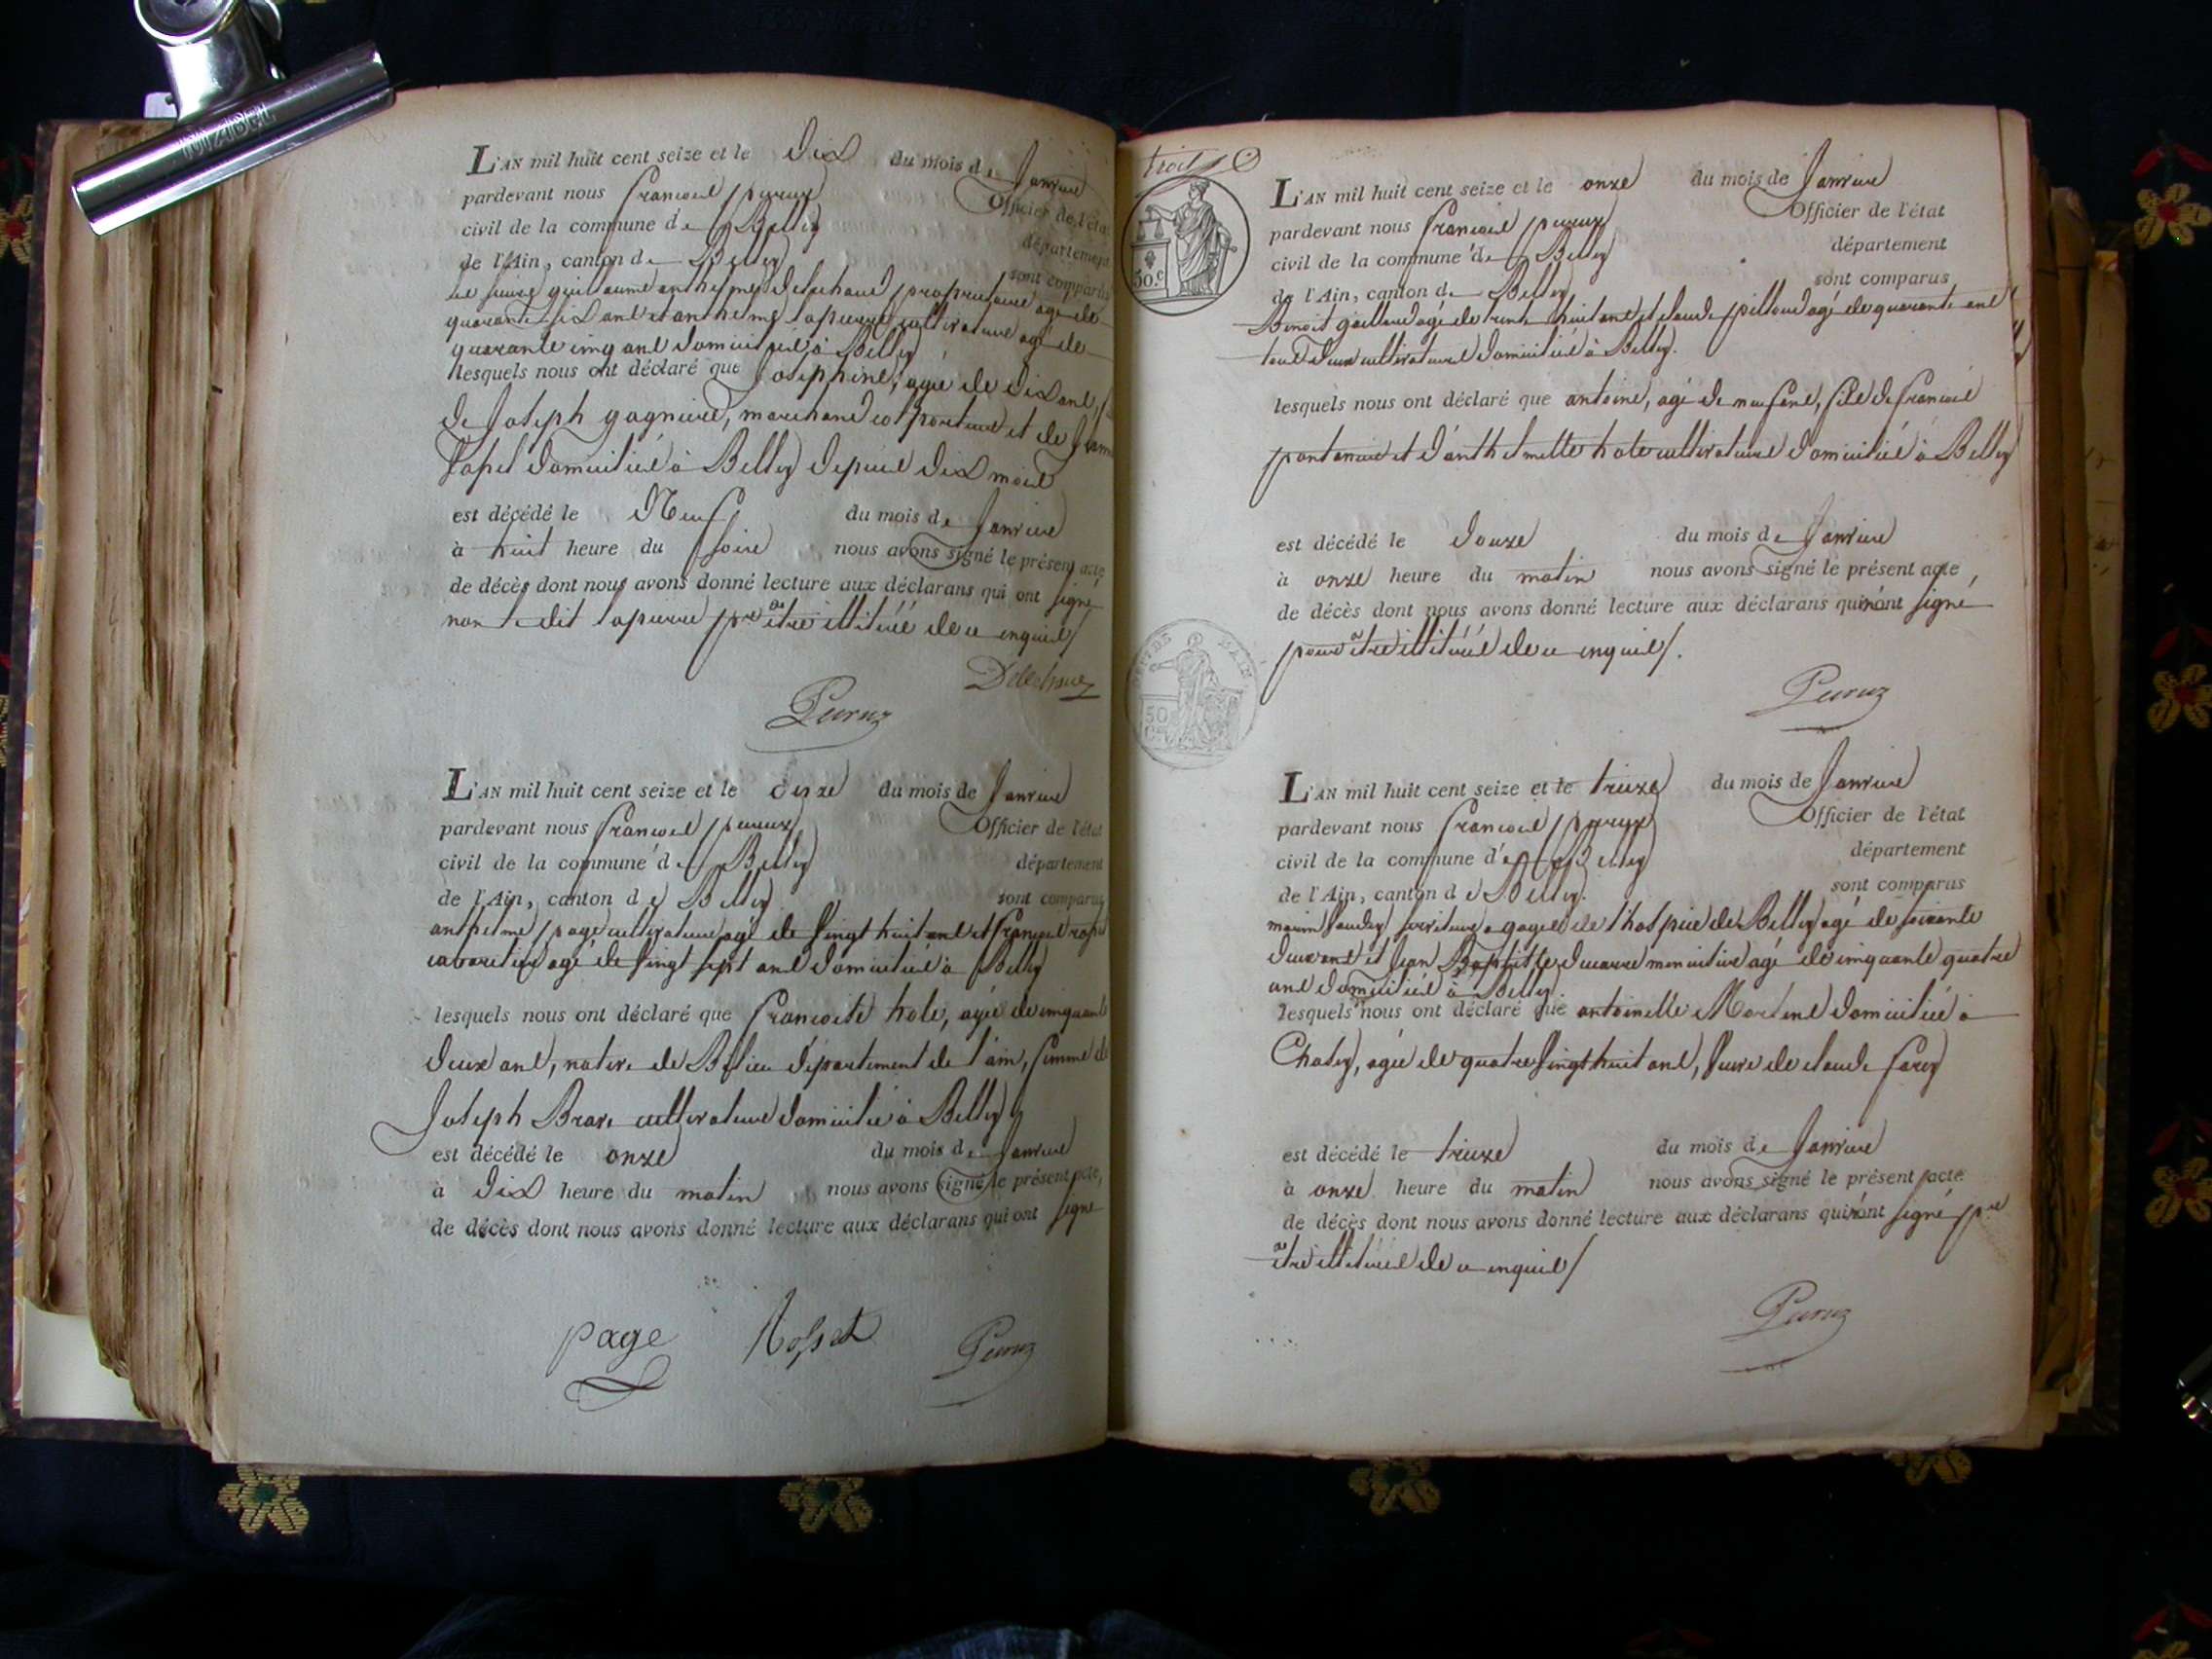 NIABEL
L'AN mil huit cent seize et le dix du mois de Janvier
pardevant nous francois peyrux Officier de l'état
civil de la commune de Belley département
de l'Ain, canton de Belley sont comparus
guillaume anthelme delachaud propriétaire agé de
quarante six ans et anthelme lapierre cultivateur agé de
quarante cinq ans domiciliés à Belley
lesquels nous ont déclaré que Josephine, agée de dix ans,
de Joseph gagnieres, marchand colporteur et de
domiciliés à Belley depuis dix mois
est décédé le Neuf du mois de Janvier
à huit heure du soire nous avons signé le présent acte
de décès dont nous avons donné lecture aux déclarans qui ont signé
non le dit lapierre pre être illitéré de ce enquis /
Delachaux
Peiruz
L'AN mil huit cent seize et le onze du mois de Janvier
pardevant nous francois peyrux Officier de l'état
civil de la commune de Belley département
de l'Ain, canton de Belley sont comparus
anthelme page cultivateur agé de vingt huit ans et francois
cabaretier agé de vingt sept ans domiciliés à Belley
lesquels nous ont déclaré que francoise hote, agée de cinquante
deux ans, native de département de l'ain, femme de
Joseph Brave cultivateur domicilié à Belley
est décédé le onze du mois de Janvier
à dix heure du matin nous avons signé le présent acte,
de décès dont nous avons donné lecture aux déclarans qui ont signé
page Rosset Peiruz
trois
50.c
L'AN mil huit cent seize et le onze du mois de Janvier
pardevant nous francois peyrux Officier de l'état
civil de la commune de Belley département
de l'Ain, canton de Belley sont comparus
Benoit gaillard agé de trente huit ans et claude pilloud agé de quarante ans
tous deux cultivateurs domiciliés à Belley.
lesquels nous ont déclaré que antoine, agé de neuf ans, fils de francois
pontanier et d'anthelmette hote cultivateurs domiciliés à Belley
est décédé le douze du mois de Janvier
à onze heure du matin nous avons signé le présent acte
de décès dont nous avons donné lecture aux déclarans qui n'ont signé
pour être illitérés de ce enquis /.
Peiruz
L'AN mil huit cent seize et le treize du mois de Janvier
pardevant nous francois peyrux Officier de l'état
civil de la commune de Belley département
de l'Ain, canton de Belley. sont comparus
marin serviteur a gages de l'hospice de Belley agé de soixante
deux ans et Jean Baptiste ducarre menuisier agé de cinquante quatre
ans domiciliés à Belley.
lesquels nous ont déclaré que antoinette Martine domiciliée à
Chatey, agée de quatre vingt huit ans, veuve de claude farey
est décédé le treize du mois de Janvier
à onze heure du matin nous avons signé le présent acte
de décès dont nous avons donné lecture aux déclarans qui n'ont signé pre
être illitérés de ce enquis /
Peiruz